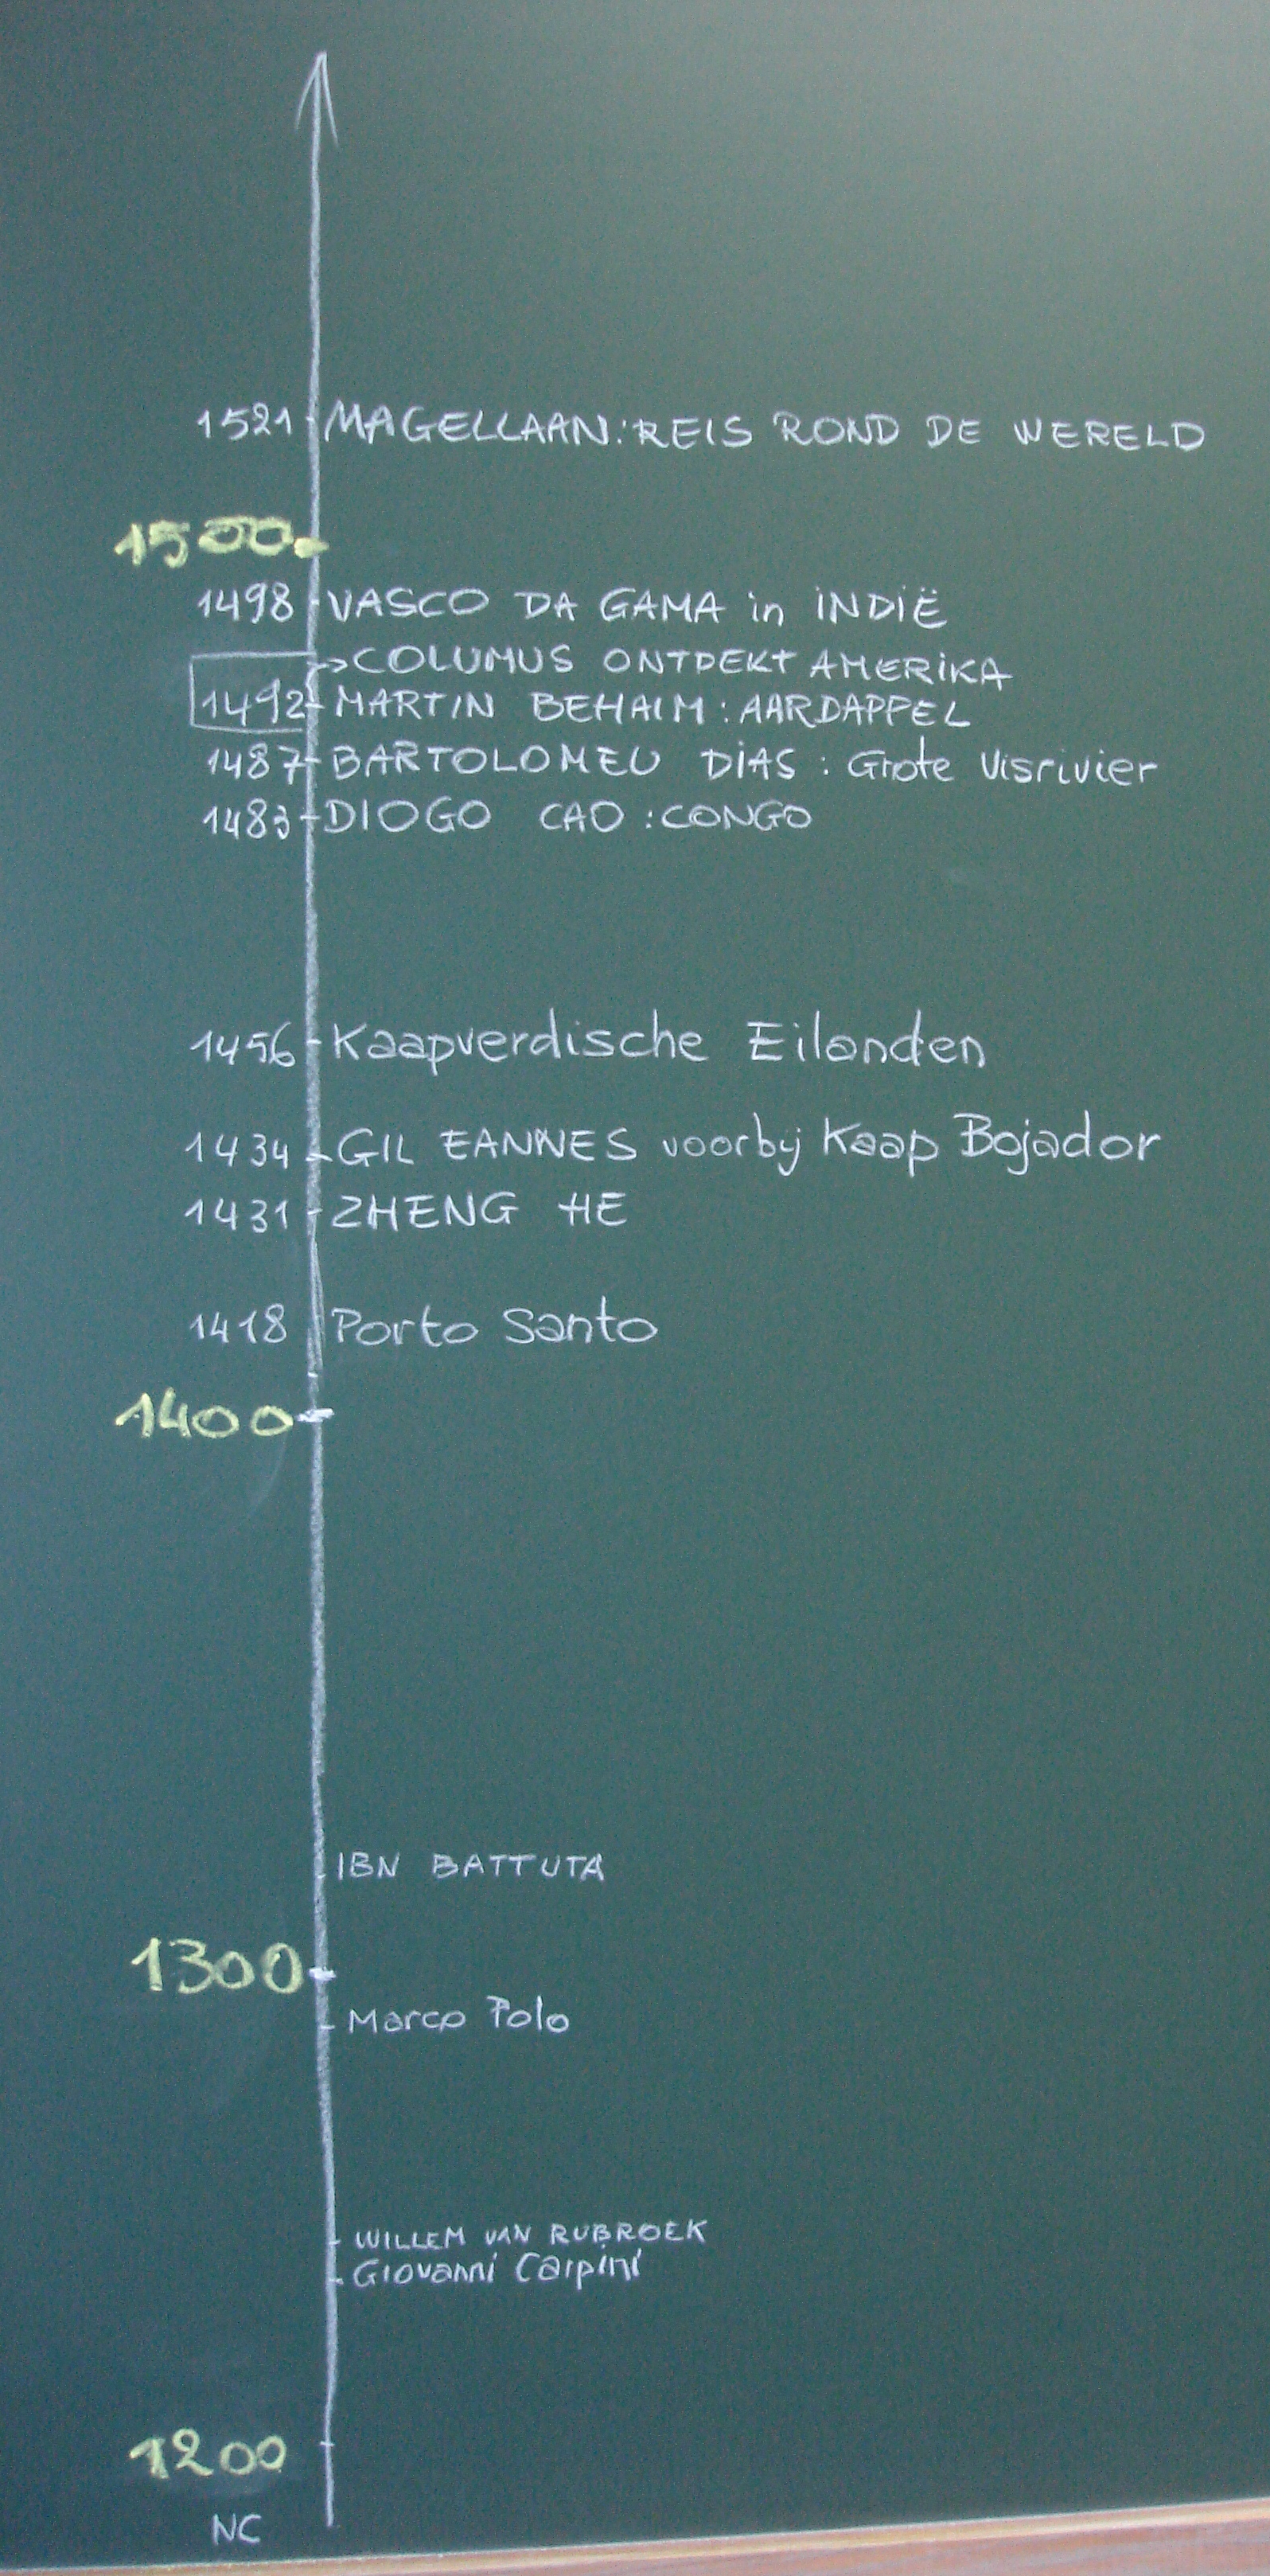 1521 MAGELLAAN: REIS ROND DE WERELD
1500
1498 VASCO DA GAMA in INDIË
COLUMUS ONTDEKT AMERIKA
1492 MARTIN BEHAIM: AARDAPPEL
1487 BARTOLOMEU DIAS: Grote Visrivier
1483 DIOGO CAO: CONGO
1456 Kaapverdische Eilanden
1434 GIL EANNES voorbij Kaap Bojador
1431 ZHENG HE
1418 Porto Santo
1400
IBN BATTUTA
1300
Marco Polo
WILLEM VAN RUBROEK
Giovanni Carpini
1200
NC